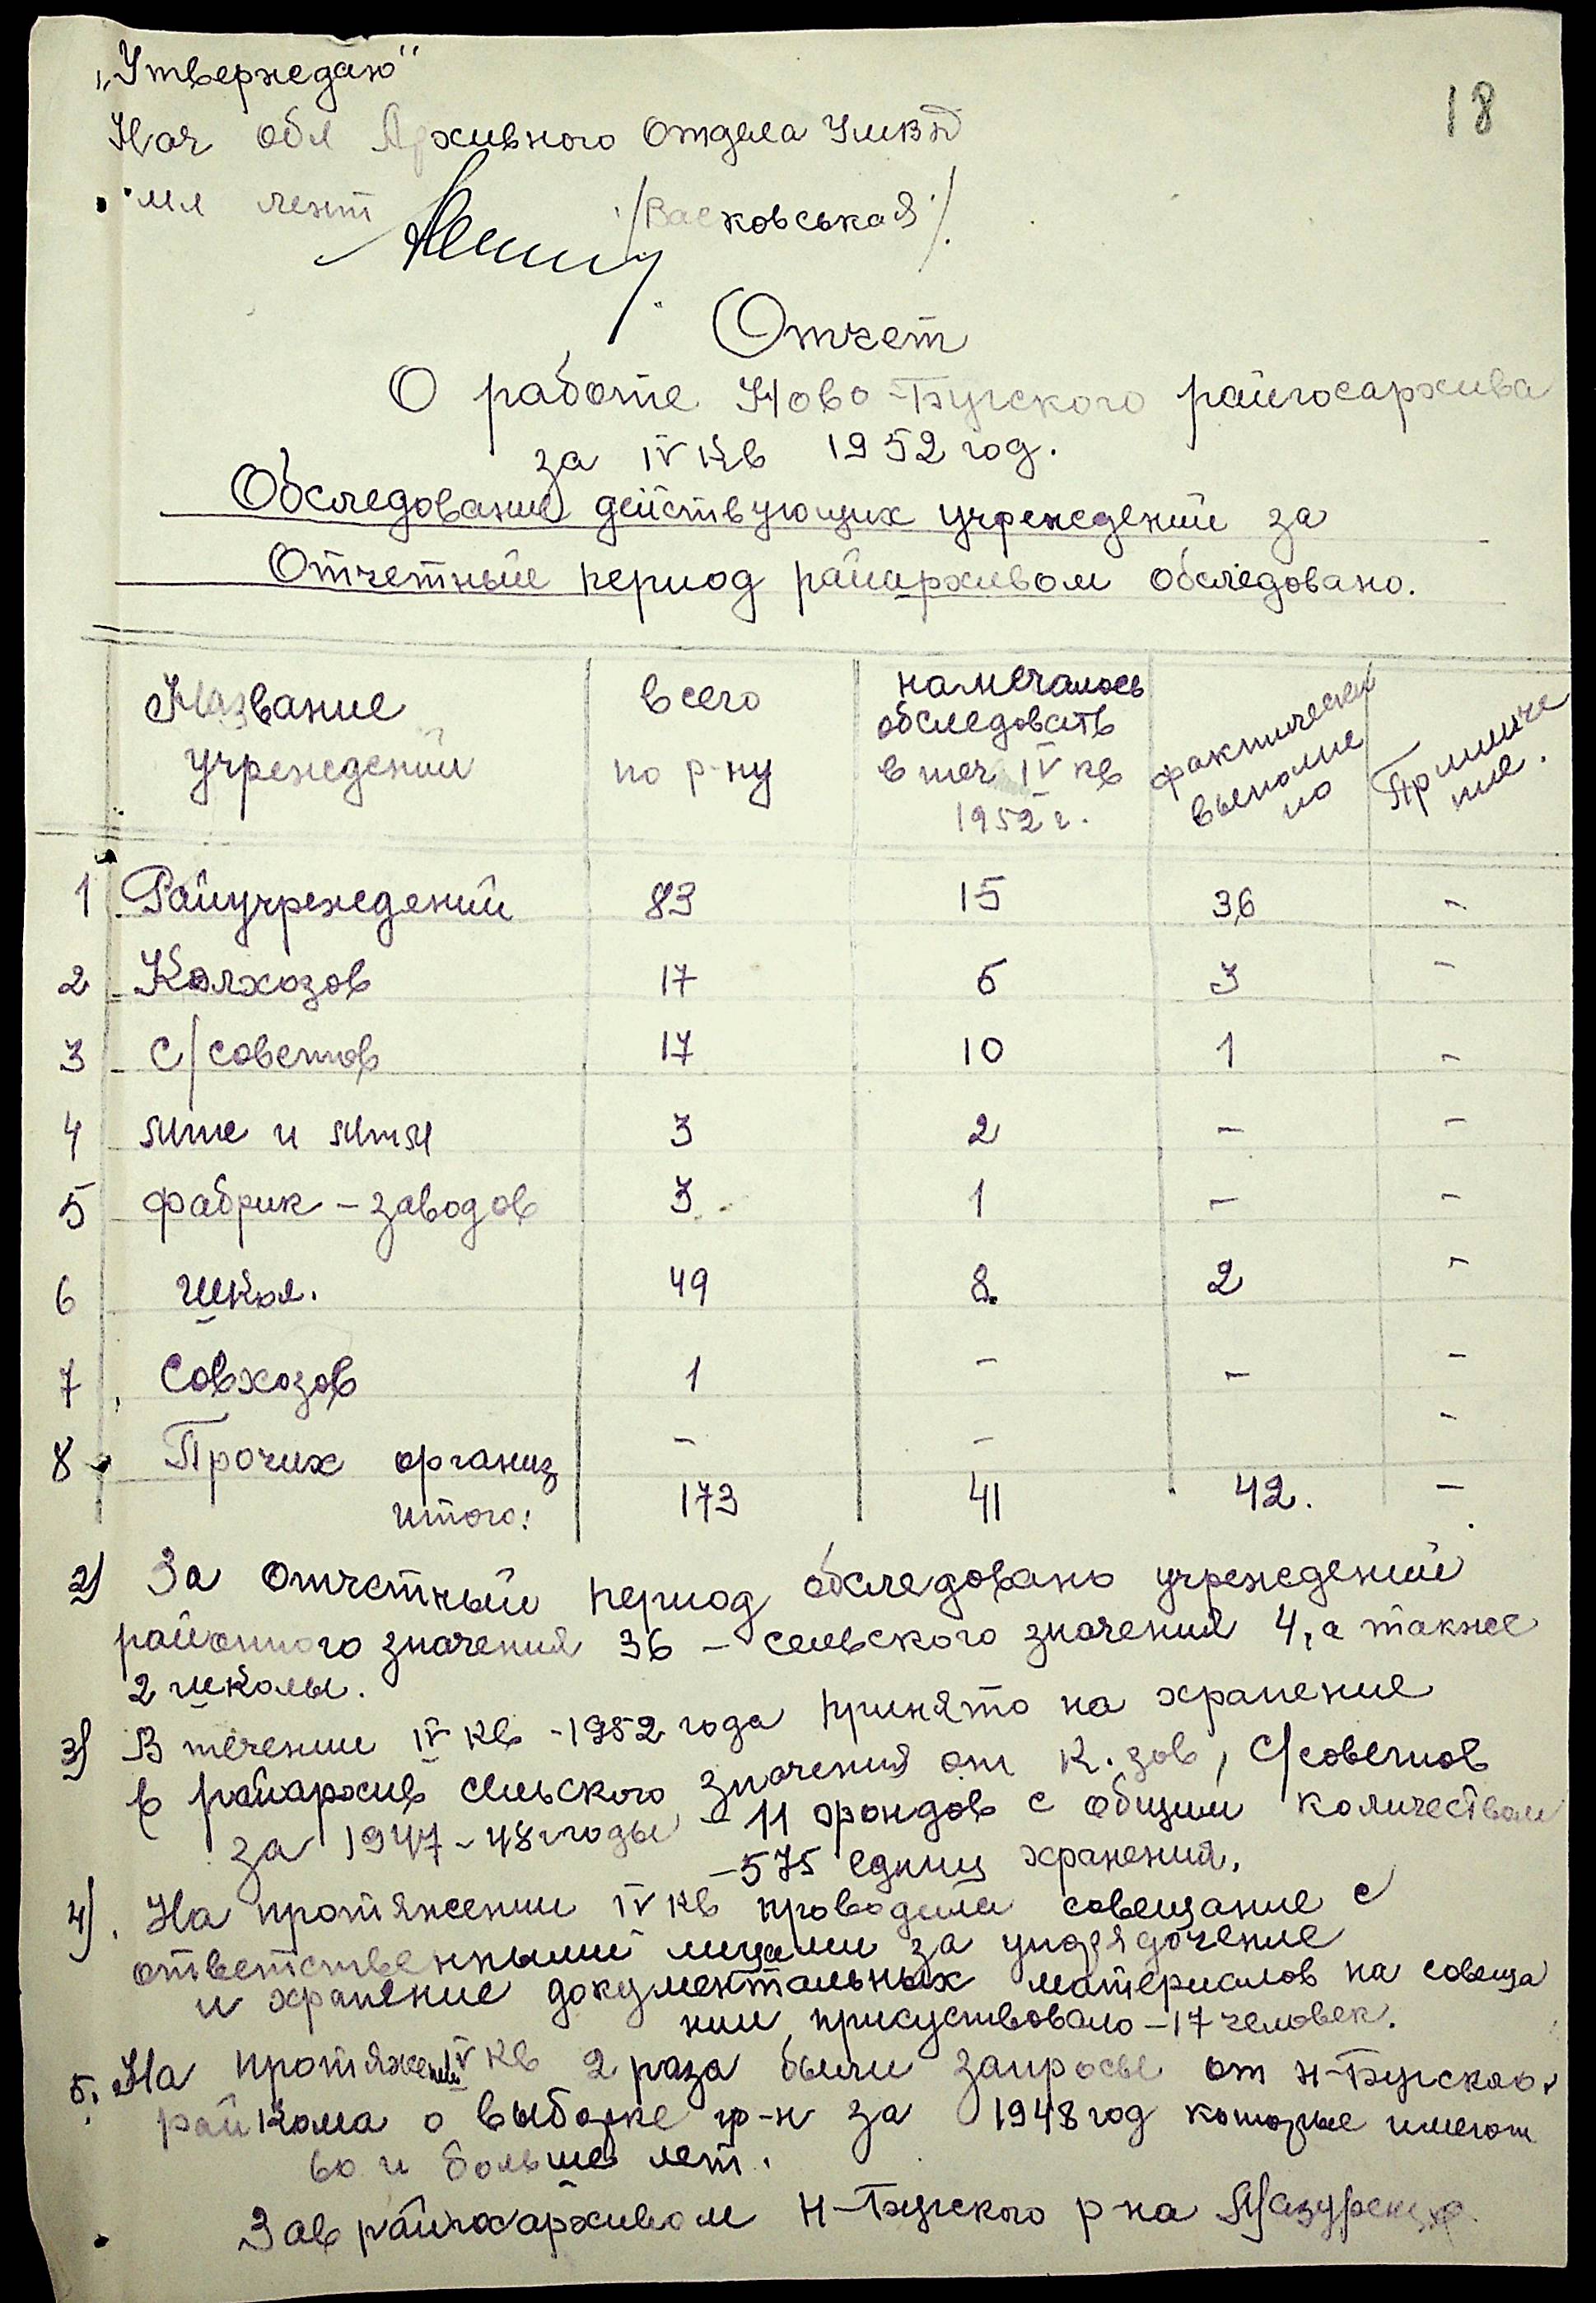 „Утверждаю"
18
Нач обл Архивного Отдела УМВД
мл лент /Васковськая/.
Отчет
О работе Ново-Бугского райгосархива
за IV Кв 1952 год.
Обследование действующих учреждений за
Отчетный период райархивом обследовано.
Название учреждений всего по р-ну намечалось обследовать в теч IV кв 1952 г. фактически выполнено Примичение.
1 Райучреждений 83 15 36 -
2 Колхозов 17 5 3 -
3 С/советов 17 10 1 -
4 МТС и МТМ 3 2 - -
5 фабрик-заводов 3 1 - -
6 школ. 49 8 2 -
7 Совхозов 1 - - -
8 Прочих организ - - -
итого: 173 41 42. -
2) За отчетный период обследовано учреждений
районного значения 36 - сельского значения 4, а также
2 школы.
3) В течении IV кв - 1952 года принято на хранение
в райархив сельского значения от к.зов, С/советов
за 1947-48 годы - 11 фондов с общим количеством
- 575 единиц хранения.
4). На протяжении IV кв проводили совещание с
ответственными лицами за упорядочение
и хранение документальных материалов на совеща
нии присуствовало - 17 человек.
5. На протяжении IV кв 2 раза были запросы от Н-Бугского
райкома о выборке гр-н за 1948 год которые имеют
60 и больше лет.
Зав райгосархивом Н-Бугского р-на